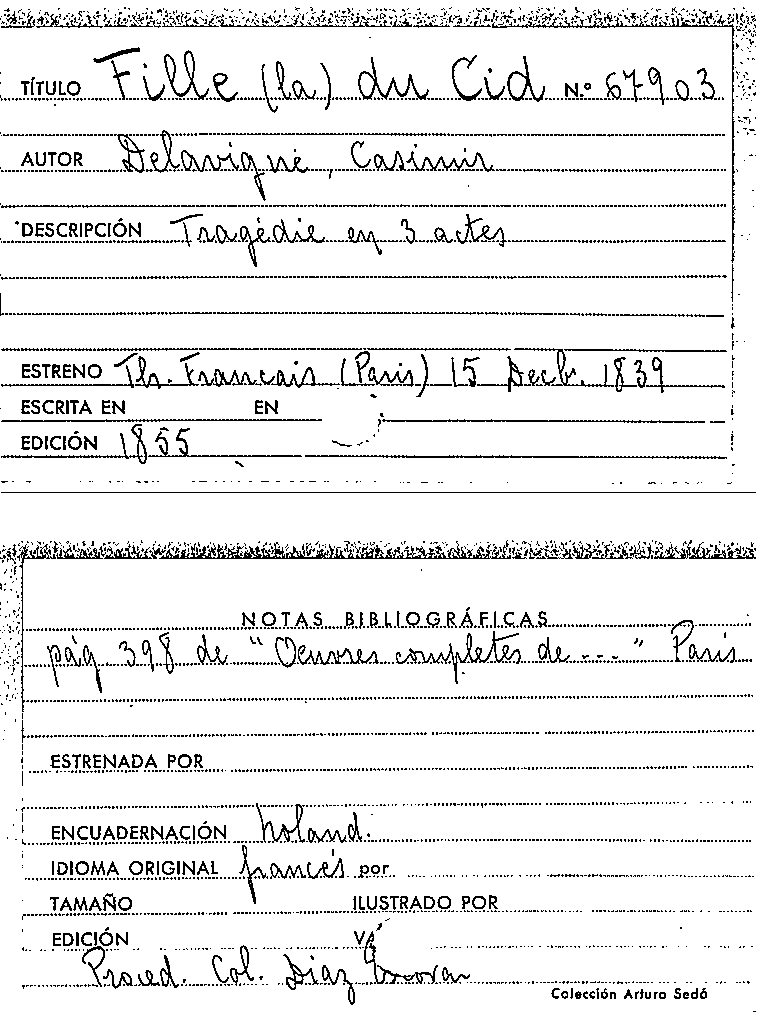 TÍTULO Fille (la) du Cid N.º 67903
AUTOR Delavigne, Casimir
DESCRIPCIÓN Tragédie en 3 actes
ESTRENO Th. Francais (Paris) 15 Decb. 1839
ESCRITA EN EN
EDICIÓN 1855
NOTAS BIBLIOGRÁFICAS
pág 398 de "Oeuvres completes de ---" Paris
ESTRENADA POR
ENCUADERNACIÓN holand.
IDIOMA ORIGINAL francés por
TAMAÑO ILUSTRADO POR
EDICIÓN
Proced. Col. Diaz
Colección Arturo Sedó